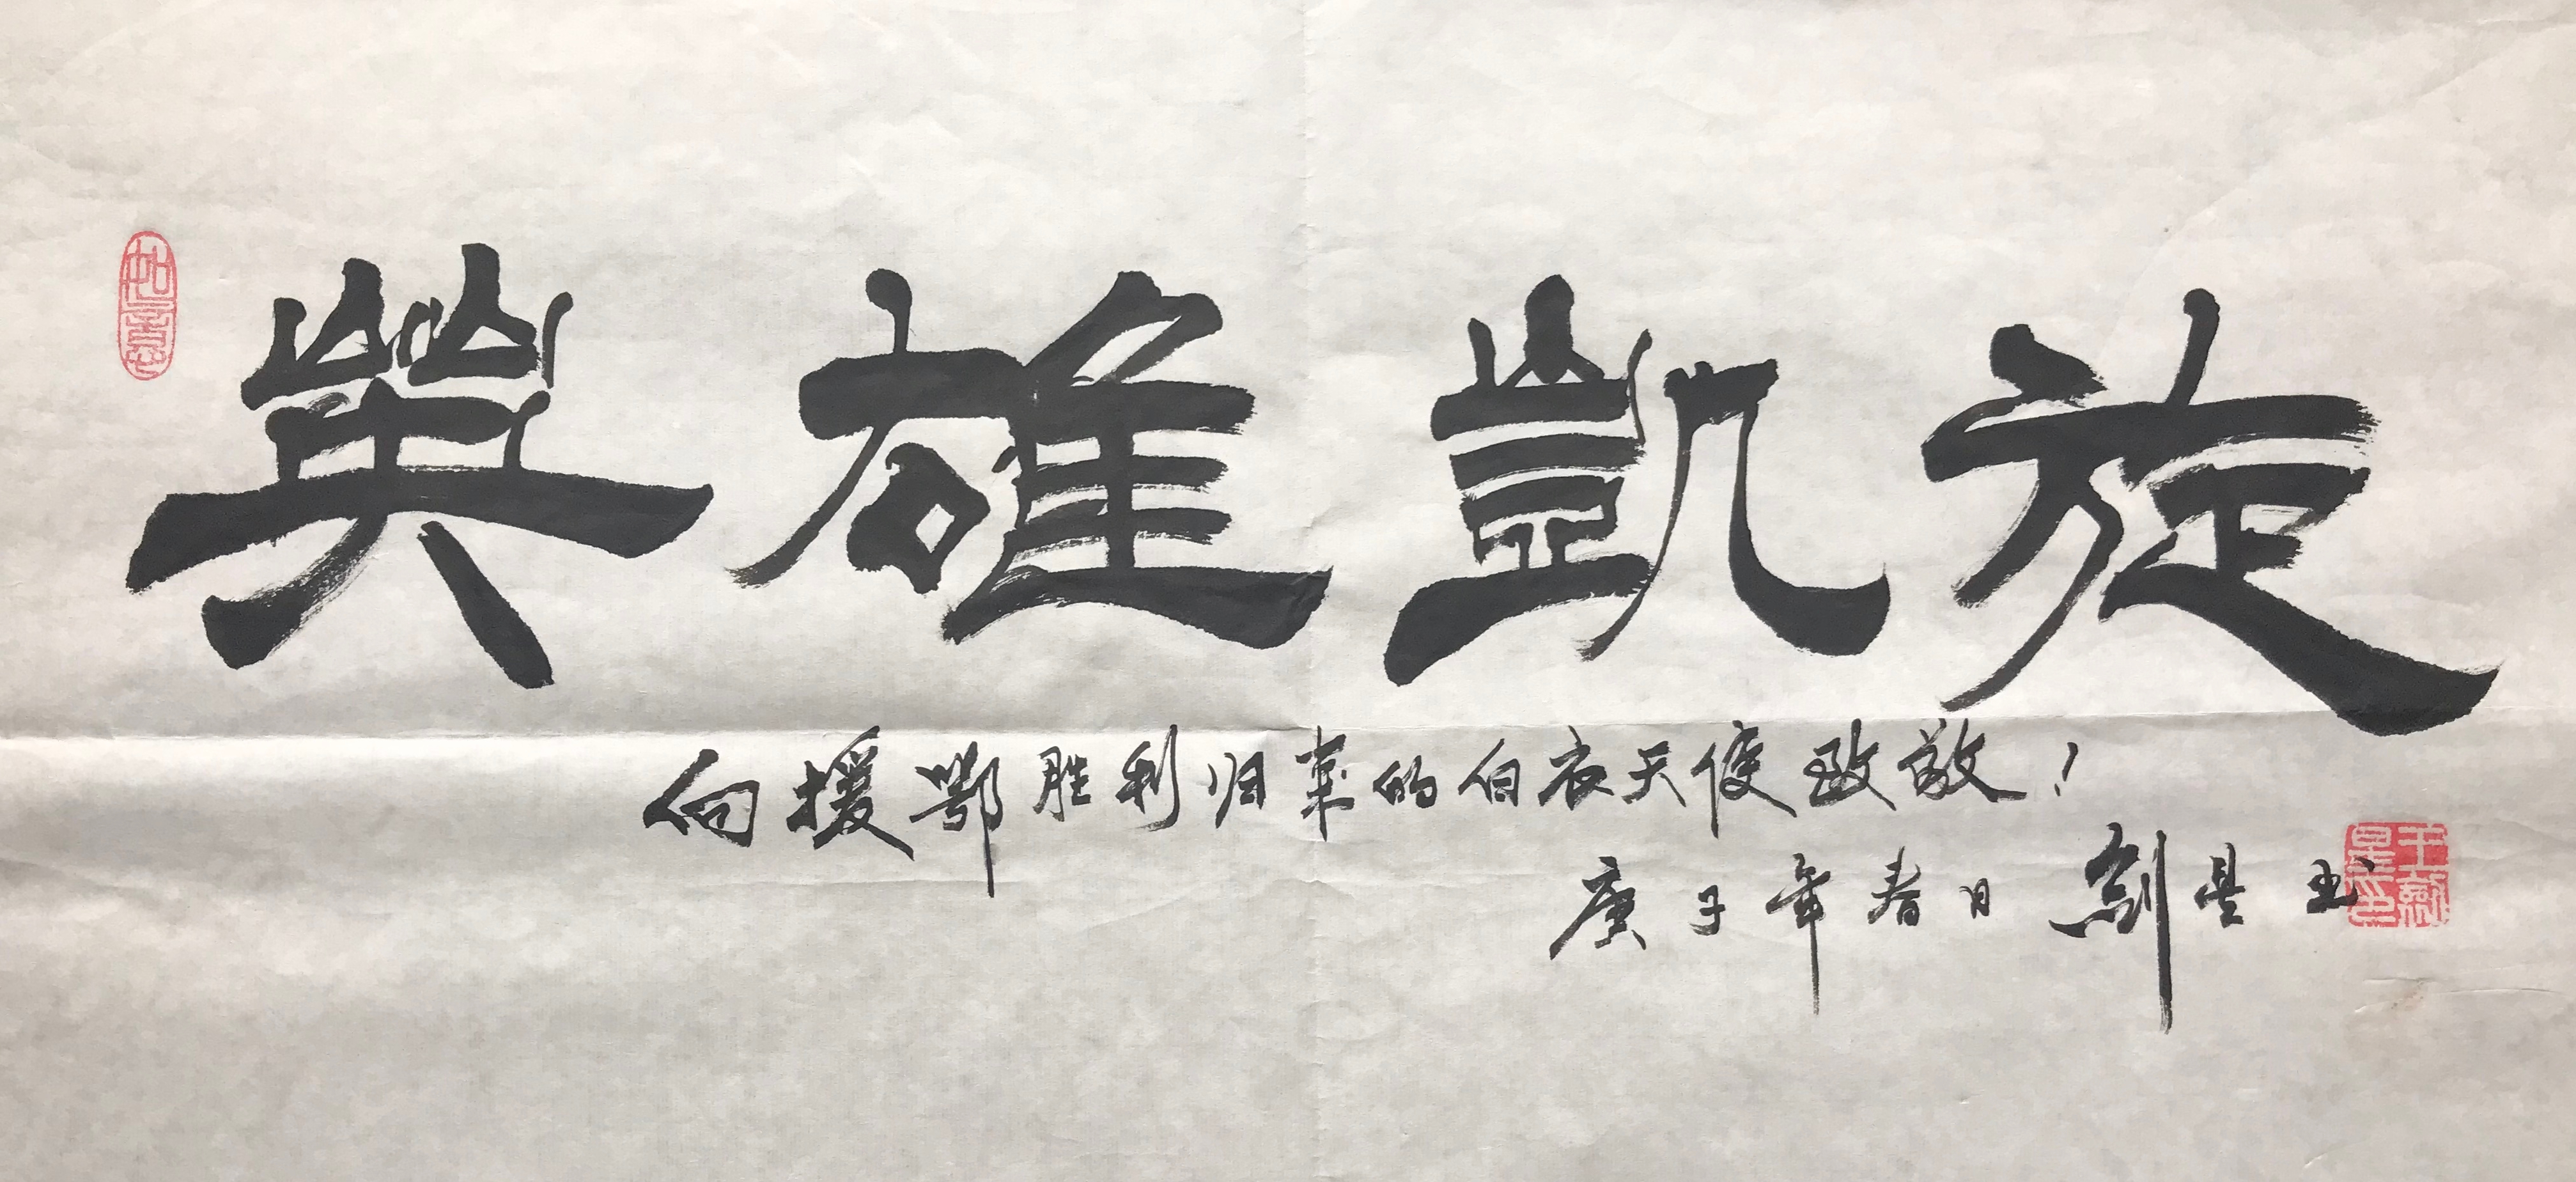 英雄凱旋
向援鄂胜利归来的白衣天使致敬！
庚子年春日 剑星书
如意
王剑星印